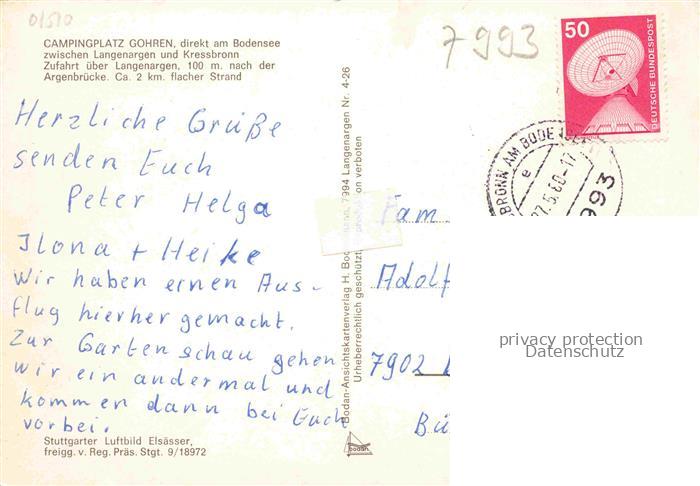 01510
CAMPINGPLATZ GOHREN, direkt am Bodensee
zwischen Langenargen und Kressbronn
Zufahrt über Langenargen, 100 m. nach der
Argenbrücke. Ca. 2 km. flacher Strand
7993
50
DEUTSCHE BUNDESPOST
BRONN AM BODE
e
7.5.80-17
993
Herzliche Grüße
senden Euch
Peter Helga
Ilona + Heike
Wir haben einen Aus-
flug hierher gemacht.
Zur Gartenschau gehen
wir ein andermal und
kommen dann bei Euch
vorbei.
Stuttgarter Luftbild Elsässer,
freigg. v. Reg. Präs. Stgt. 9/18972
Bodan-Ansichtskartenverlag H. Bod ann, 7994 Langenargen Nr. 4-26
Urheberrechtlich geschützt on verboten
bodan
Fam
Adolf
7902
Bü
privacy protection
Datenschutz